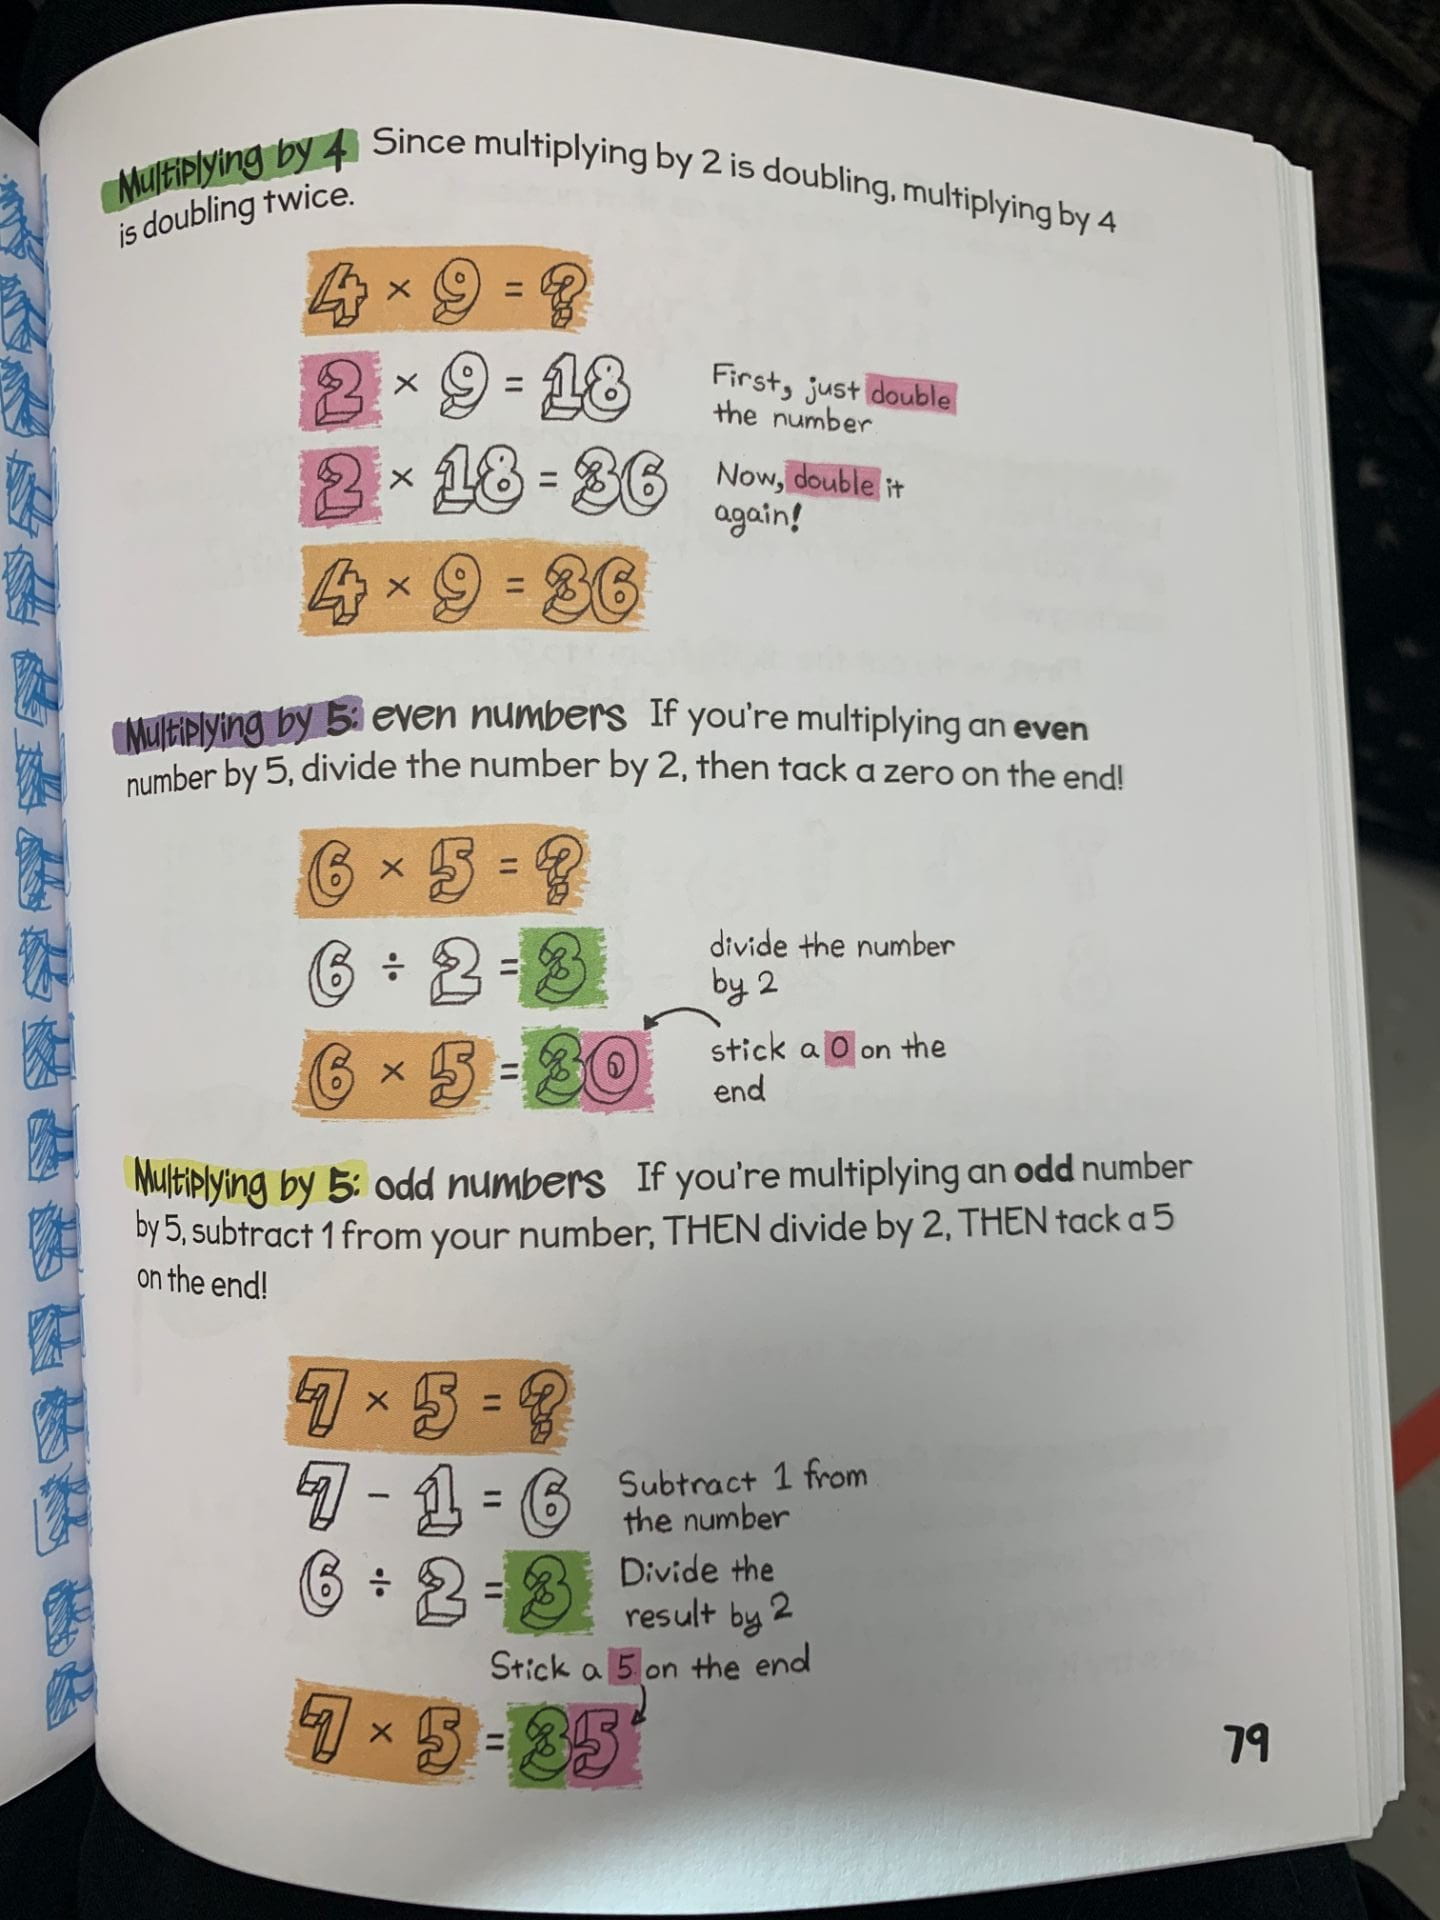 Multiplying by 4 Since multiplying by 2 is doubling, multiplying by 4
is doubling twice.
4 × 9 = ?
2 × 9 = 18 First, just double
the number
2 × 18 = 36 Now, double it
again!
4 × 9 = 36
Multiplying by 5: even numbers If you're multiplying an even
number by 5, divide the number by 2, then tack a zero on the end!
6 × 5 = ?
6 ÷ 2 = 3 divide the number
by 2
6 × 5 = 30 stick a 0 on the
end
Multiplying by 5: odd numbers If you're multiplying an odd number
by 5, subtract 1 from your number, THEN divide by 2, THEN tack a 5
on the end!
7 × 5 = ?
7 - 1 = 6 Subtract 1 from
the number
6 ÷ 2 = 3 Divide the
result by 2
Stick a 5 on the end
7 × 5 = 35
79